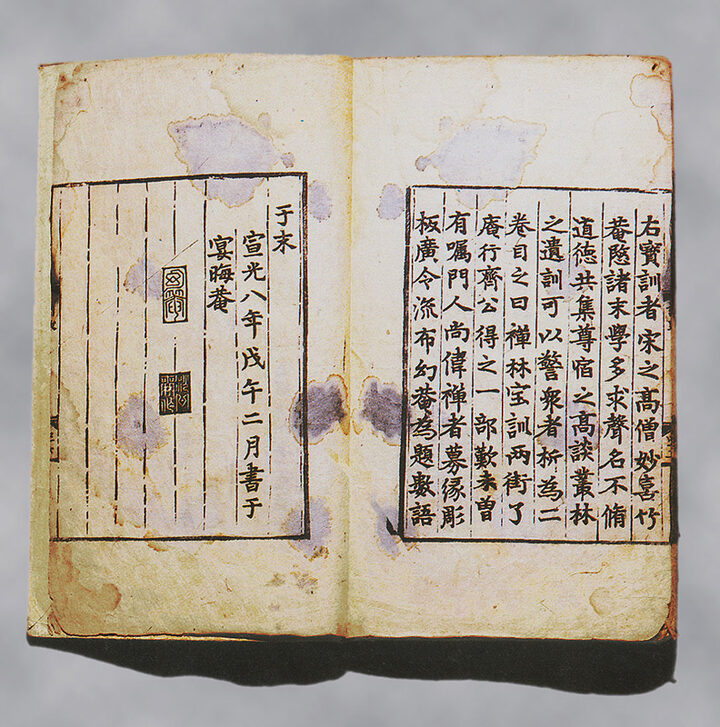 右寶訓者宋之髙僧妙喜竹
菴諸末學多求聲名不脩
道德共集尊宿之髙談叢林
之遺訓可以警衆者析為二
卷目之曰禪林宝訓两街了
庵行齊公得之一部歎未曽
有嘱門人尚偉禅者募縁彫
板廣令流布幻菴為題數語
于末
宣光八年戊午二月書于
宴晦菴